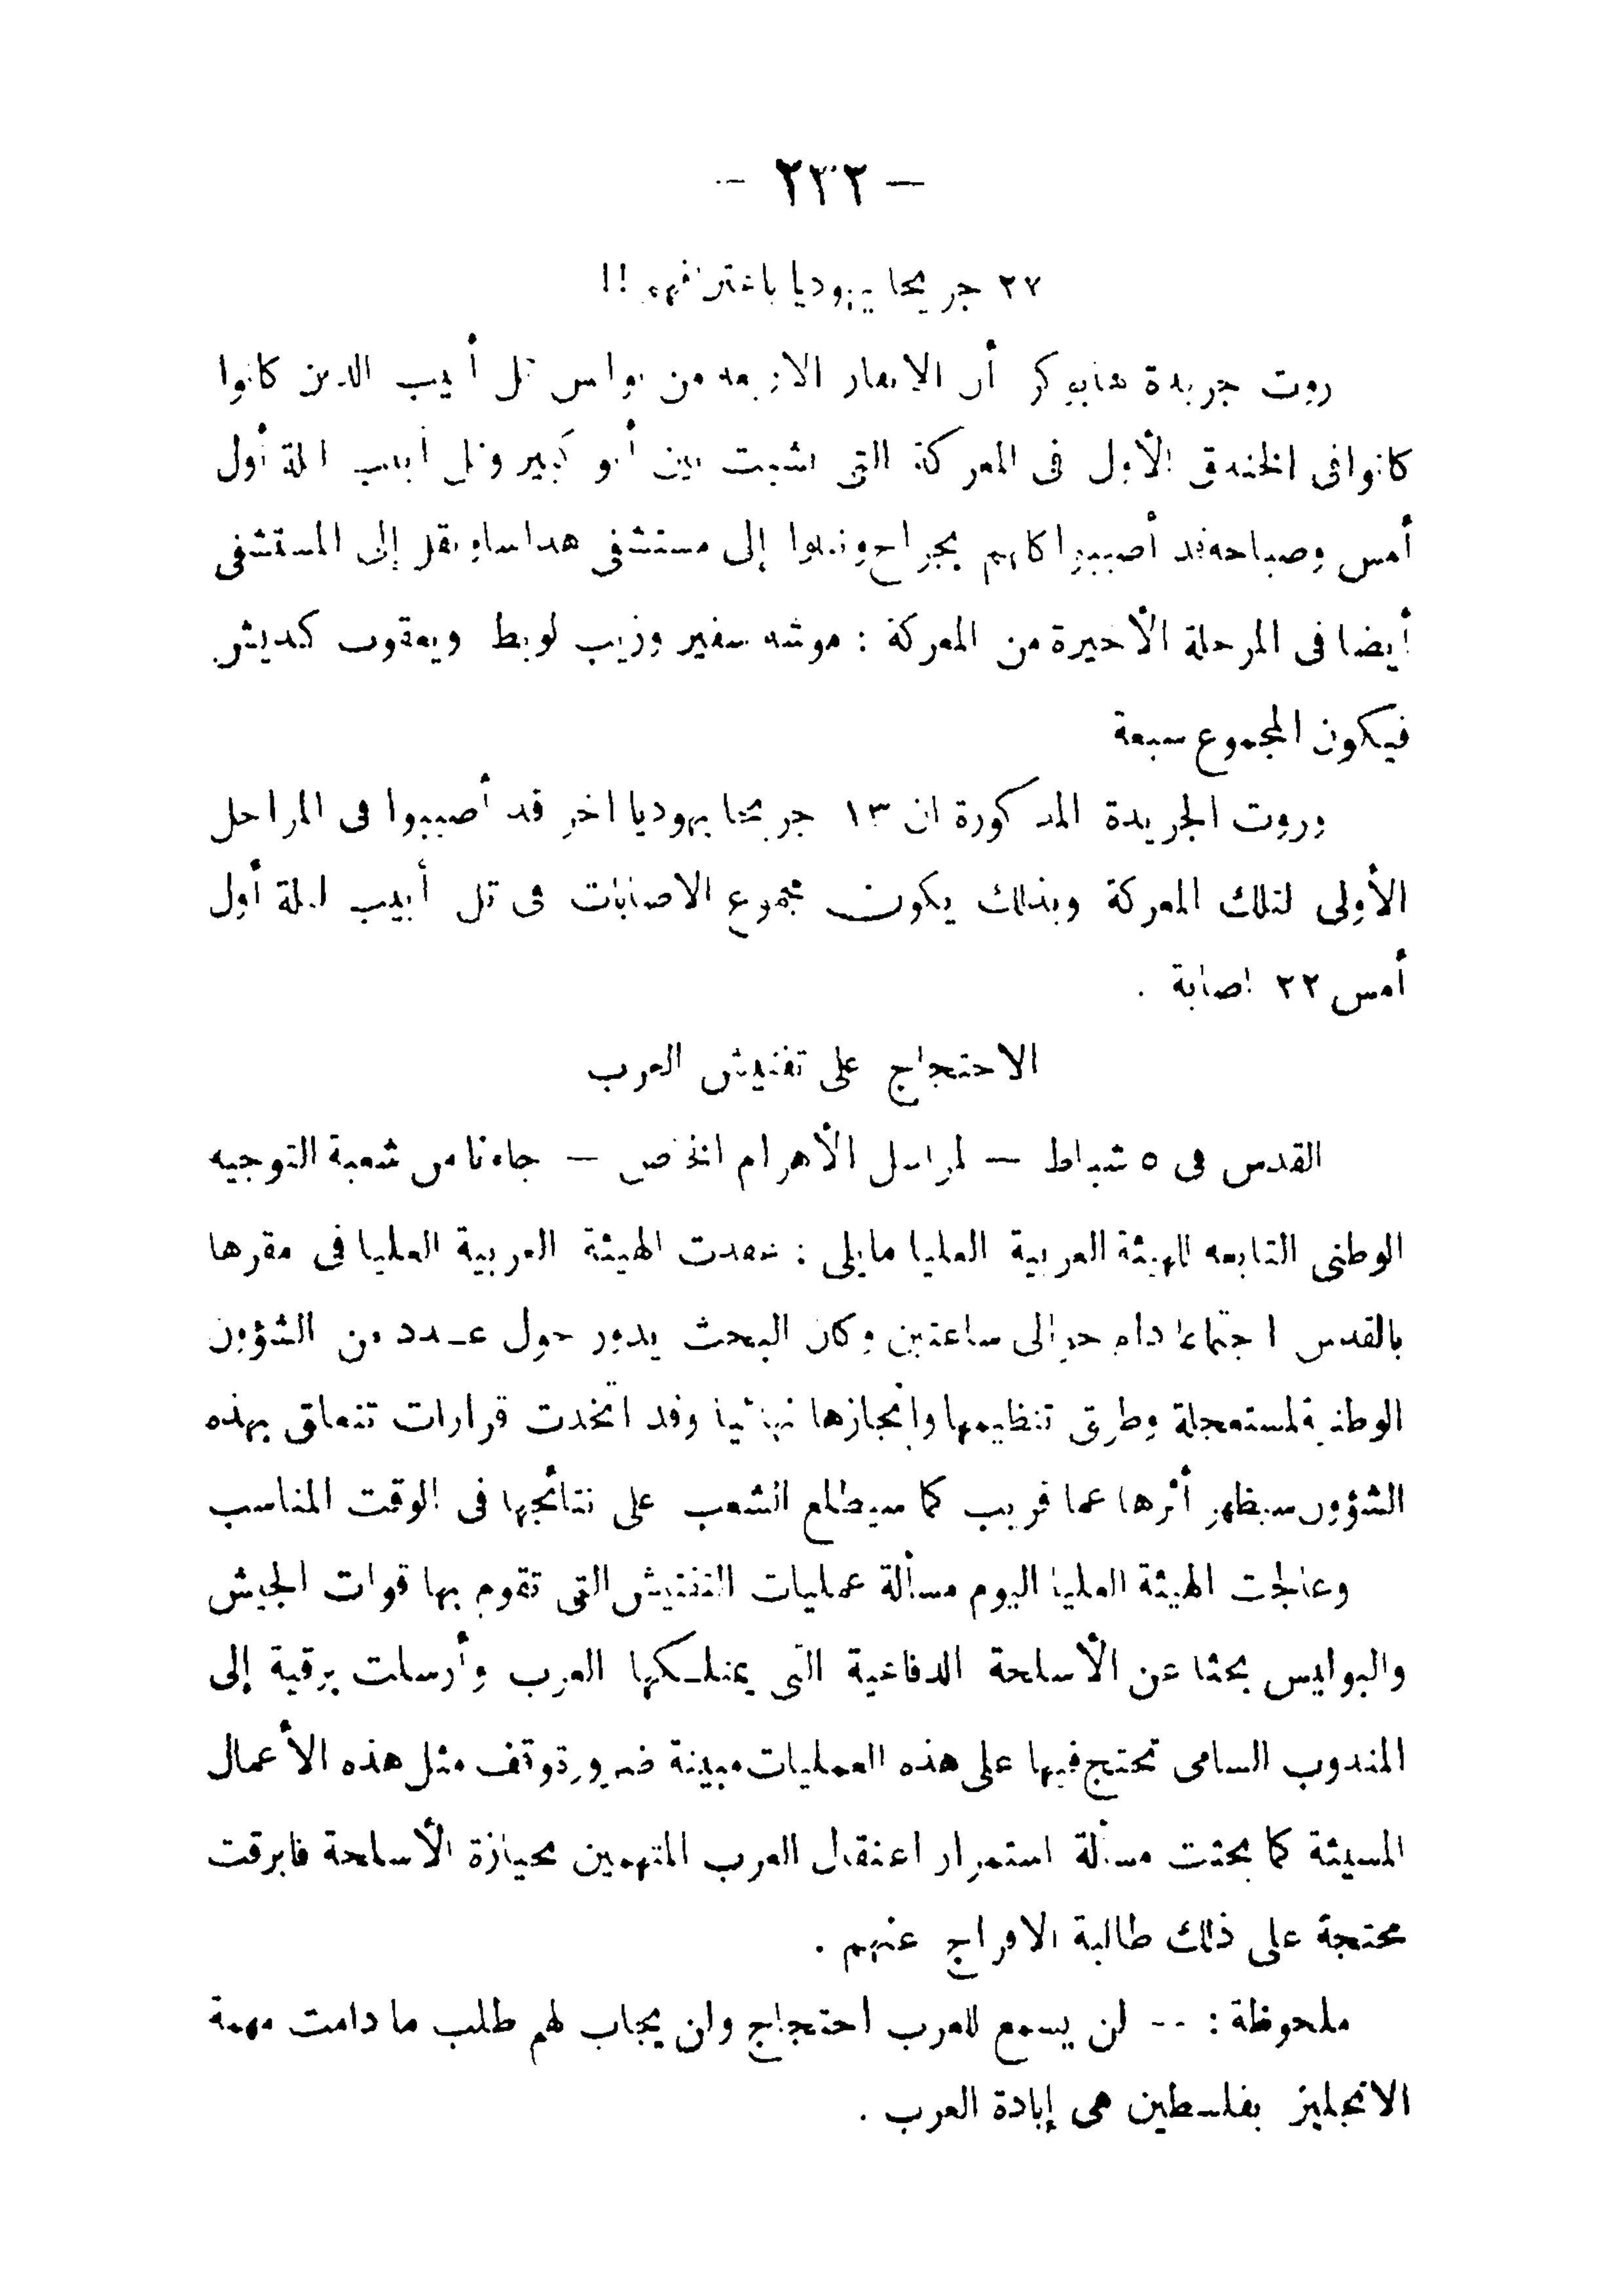 — ٢٣٢ —
٢٧ جريحا يهوديا باعترافهم !!
روت جريدة هابوكر أن الانفار الاربعة من بوليس تل أبيب الذين كانوا
كانوا فى الخندق الأول فى المعركة التى نشبت بين أبو كبير وتل أبيب ليلة أول
أمس وصباحه قد أصيبوا كلهم بجراح ونقلوا إلى مستشفى هداسا ونقل إلى المستشفى
أيضا فى المرحلة الأخيرة من المعركة : موشه سفير وزيب لوبط ويعقوب كديش
فيكون المجموع سبعة
وروت الجريدة المذكورة ان ١٣ جريحا يهوديا اخر قد أصيبوا فى المراحل
الأولى لتلك المعركة وبذلك يكون مجموع الاصابات فى تل أبيب ليلة أول
أمس ٢٢ اصابة .
الاحتجاج على تفتيش العرب
القدس فى ٥ شباط — لمراسل الأهرام الخاص — جاءنا من شعبة التوجيه
الوطنى التابعه للهيئة العربية العليا مايلى : عقدت الهيئة العربية العليا فى مقرها
بالقدس اجتماعا دام حوالى ساعتين وكان البحث يدور حول عـدد من الشؤون
الوطنية لمستعجلة وطرق تنظيمها وانجازها نهائيا وقد اتخدت قرارات تتعلق بهذه
الشؤون سيظهر أثرها عما قريب كما سيطلع الشعب على نتائجها فى الوقت المناسب
وعالجت الهيئة العليا اليوم مسألة عمليات التفتيش التى تقوم بها قوات الجيش
والبوليس بحثا عن الأسلحة الدفاعية التى يمتلـكها العرب وأرسلت برقية إلى
المندوب السامى تحتج فيها على هذه العمليات مبينة ضرورة وقف مثل هذه الأعمال
المسيئة كما بحثت مسألة استمرار اعتقال العرب المتهمين بحيازة الأسلحة فابرقت
محتجة على ذلك طالبة الافراج عنهم .
ملحوظة : -- لن يسمع للعرب احتجاج ولن يجاب لهم طلب ما دامت مهمة
الانجليز بفلسطين هى إبادة العرب .